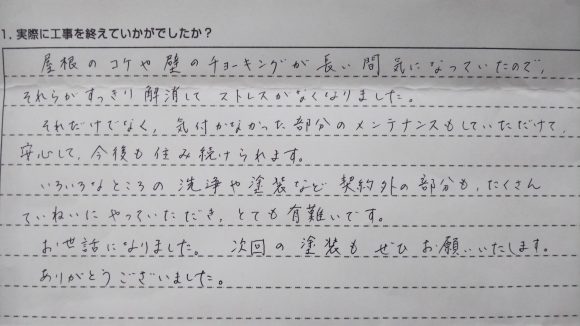 1. 実際に工事を終えていかがでしたか？
屋根のコケや壁のチョーキングが長い間気になっていたので、
それらがすっきり解消してストレスがなくなりました。
それだけでなく、気付かなかった部分のメンテナンスもしていただけて、
安心して、今後も住み続けられます。
いろいろなところの洗浄や塗装など契約外の部分も、たくさん
ていねいにやっていただき、とても有難いです。
お世話になりました。 次回の塗装もぜひお願いいたします。
ありがとうございました。